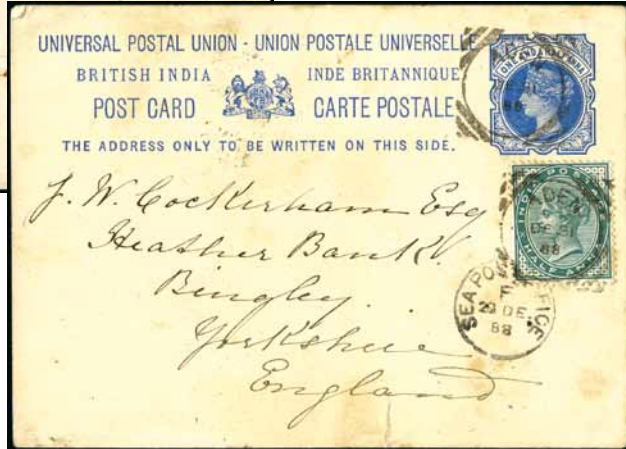 UNIVERSAL POSTAL UNION - UNION POSTALE UNIVERSELLE
BRITISH INDIA INDE BRITANNIQUE
POST CARD CARTE POSTALE
THE ADDRESS ONLY TO BE WRITTEN ON THIS SIDE.
ADEN
DE 31
88
HALF ANNA
J. W. Cockerham Esq
Heather Bank.
Bingley.
Yorkshire
England
SEA POST OFFICE
DE
88